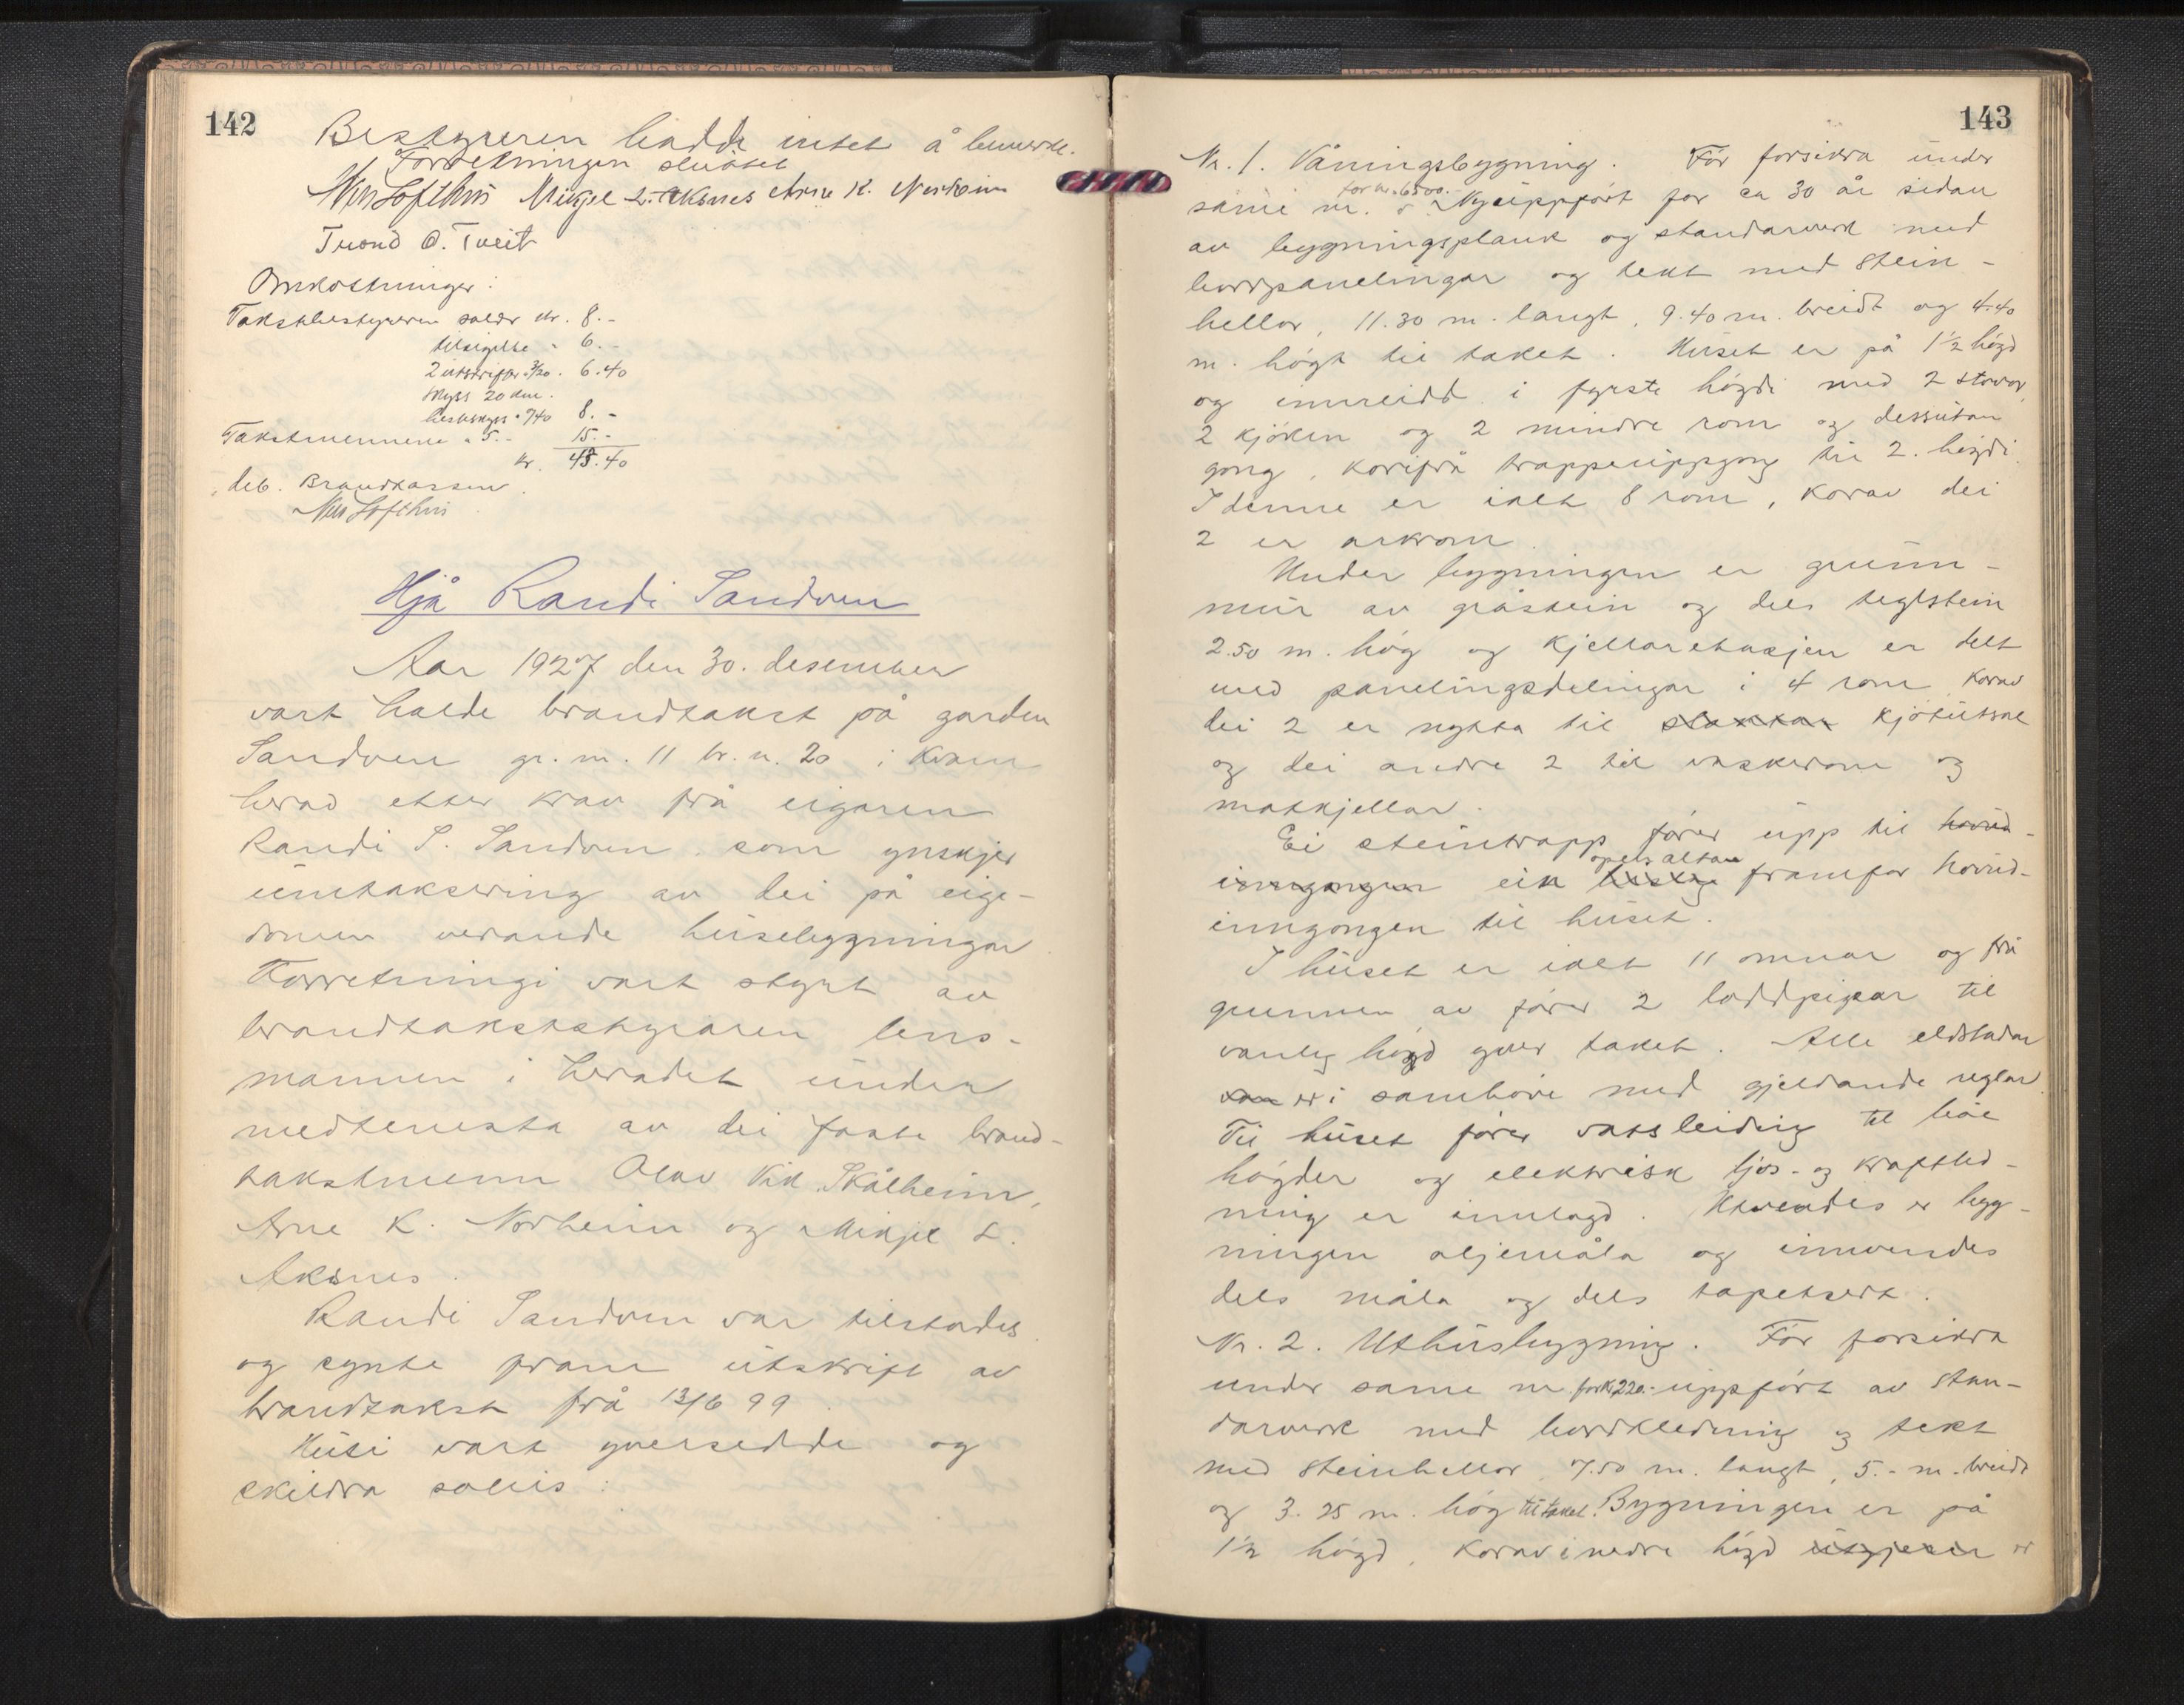 142
Bestyreren hadde intet å bemerke.
Forretningen sluttet
Nils Lofthus Mikjel L. Aksnes Arne K. Norheim
Trond O. Tveit
Omkostninger:
Takstbestyreren salær kr. 8.-
tilsigelse " 6.-
2 utskrifter " 3/20 . 6.40
skyss 20 km.
hestskyss " 7/40 8.-
Takstmennene " 5.- 15.-
kr. 43.40
deb. Brandkassen
Nils Lofthus
Hjå Randi Sandven
Aar 1927 den 30. desember
vart halde brandtakst på garden
Sandven gr. nr. 11 br. n. 20 i Kvam
herad etter krav frå eigaren
Randi S. Sandven som ynskjer
umtaksering av dei på eige-
domen verande husebygningar.
Forretningi vart styrt av
brandtakststyraren lens-
mannen i heradet under
medtenesta av dei faste brand-
takstmenn Olav Vik Skålheim,
Arne K. Norheim og Mikjel L.
Aksnes.
Randi Sandven var tilstades
og synte fram utskrift av
brandtakst frå 13/6 99.
Husi vart yversedde og
skildra soleis:
143
Nr. 1. Våningsbygning. Før forsikra under
same nr. for kr. 6500.- Nyuppført for ca 30 år sidan
av bygningsplank og standarverk med
bordpanelingar og tekt med stein-
hellor, 11.30 m. langt, 9.40 m. breidt og 4.40
m. høgt til taket. Huset er på 1½ høgd
og innreidd i fyrste høgdi med 2 stovor,
2 kjøken og 2 mindre rom og dessutan
gong, korifrå trappeuppgong til 2. høgdi.
I denne er ialt 8 rom, korav dei
2 er arkrom.
Under bygningen er grunn-
mur av gråstein og dels teglstein
2.50 m. høg og kjellaretasjen er delt
med panelingsdelingar i 4 rom korav
dei 2 er nytta til slaktar kjøtutsal
og dei andre 2 til vaskerom og
matkjellar.
Ei steintrapp fører upp til hovud-
inngongen ein open altan framfor hovud-
inngongen til huset.
I huset er ialt 11 omnar og frå
grunnen av fører 2 loddpipar til
vanleg høgd yver taket. Alle eldstadar
var er i samhøve med gjeldande reglar.
Til huset fører vatsleiding til båe
høgder og elektrisk ljos- og kraftled-
ning er innlagd. Utvendes er bygg-
ningen oljemåla og innvendes
dels måla og dels tapetsert.
Nr. 2. Uthusbygning. Før forsikra
under same nr for kr 220.- uppført av stan-
darverk med bordkledning og tekt
med steinhellor, 7.50 m. langt, 5.- m. breidt
og 3.25 m. høg til taket. Bygningen er på
1½ høgd, korav i nedre høgd utgjerer er